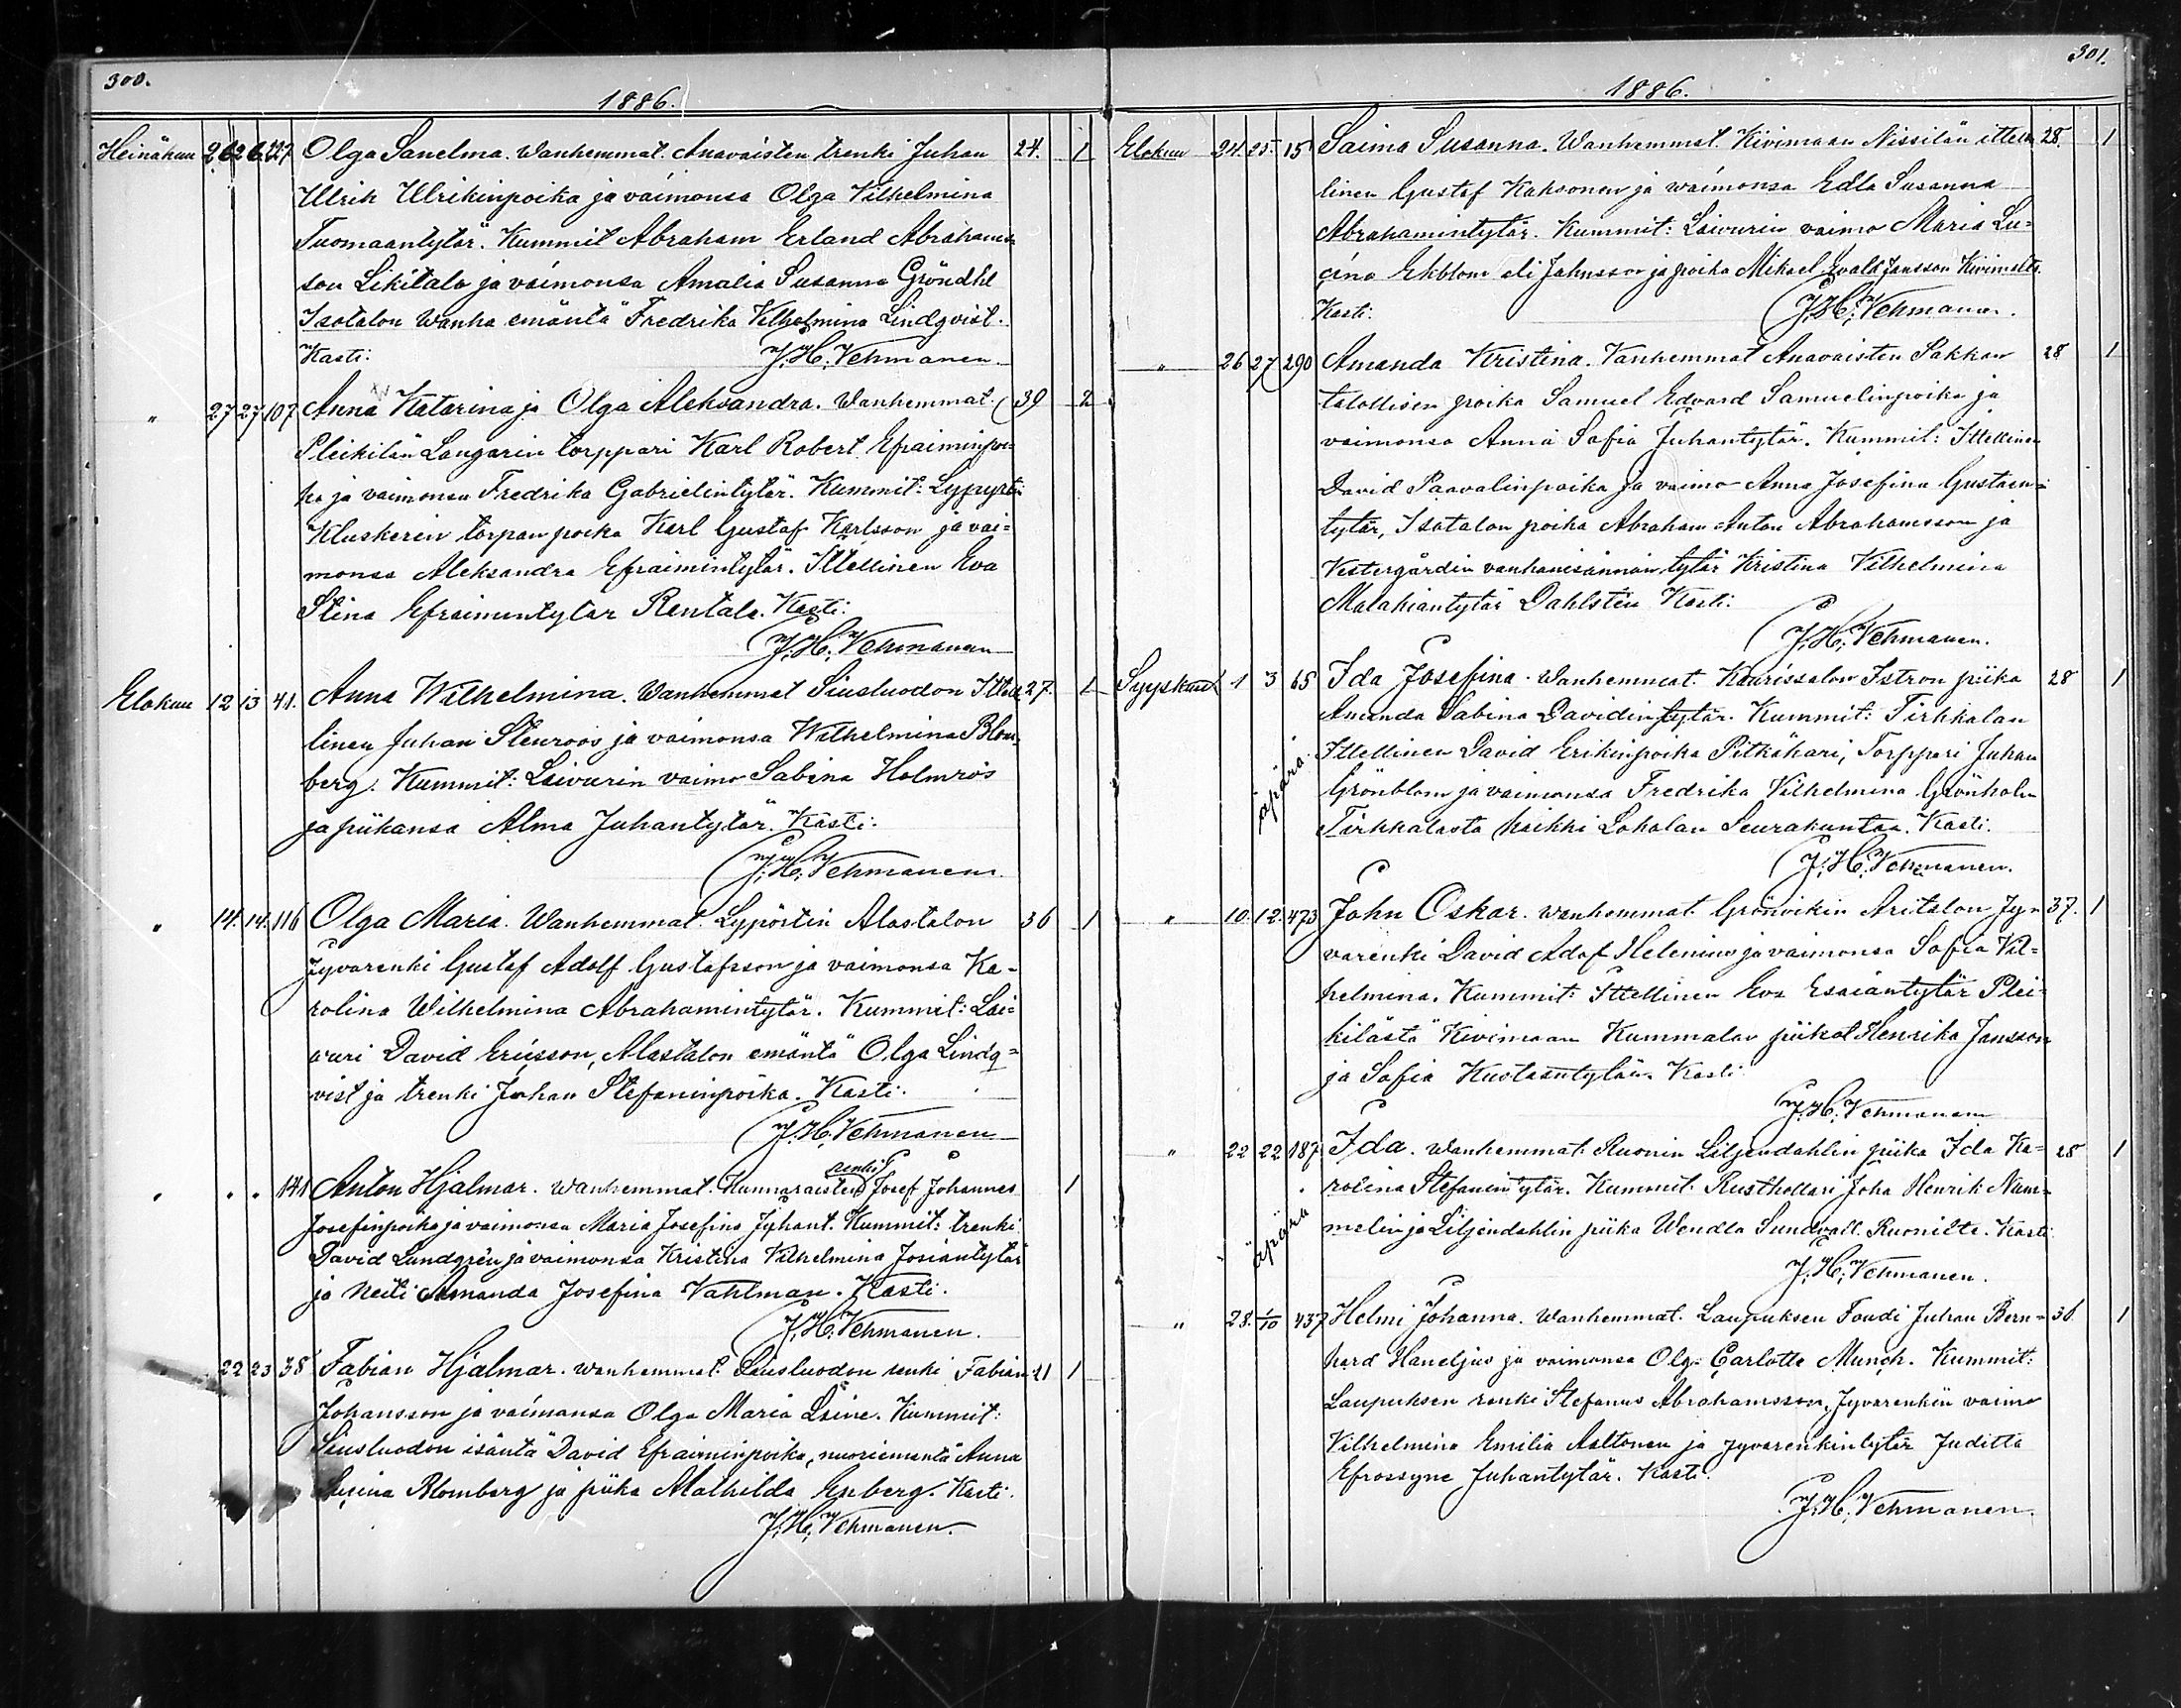 300.
1886.
Heinäkuu 26 26 127 Olga Sanelma. Wanhemmat. Anavaisten trenki Juhan 24. 1
Ulrik Ulrikinpoika ja vaimonsa Olga Vilhelmina
Tuomaantytär. Kummit Abraham Erland Abrahams-
son Likitalo ja vaimonsa Amalia Susanna Gröndhl
Isotalon wanha emäntä Fredrika Vilhelmina Lindqvist.
Kasti: J. H. Vehmanen
" 27 27 107 Anna Katarina ja Olga Aleksandra. Wanhemmat. 39 2
Pleikilän Laugarin torppari Karl Robert Efraiminpoi-
ka ja vaimonsa Fredrika Gabrielintytär. Kummit: Lypyrtin
Kluskerin torpan poika Karl Gustaf Karlsson ja vai=
monsa Aleksandra Efraimintytär. Ittellinen Eva
Stina Efraimintytär Rentala. Kasti:
J. H. Vehmanen
Elokuu 12 13 41. Anna Wilhelmina. Wanhemmat Siusluodon Ittel- 27. 1
linen Juhan Stenroos ja vaimonsa Wilhelmina Blom-
berg. Kummit: Laivurin vaimo Sabina Holmros
ja piikansa Alma Juhantytär. Kasti:
J. H. Vehmanen.
" 14. 14. 116 Olga Maria. Wanhemmat. Lypörtin Alastalon 36 1
Jyvarenki Gustaf Adolf Gustafsson ja vaimonsa Ka-
rolina Wilhelmina Abrahamintytär. Kummit: Lai=
vuri David Ericsson, Alastalon emäntä Olga Lindq=
vist ja trenki Juhan Stefaninpoika. Kasti:
J. H. Vehmanen
" " " 141 Anton Hjalmar. Wanhemmat. Kunnaraisten renki Josef Johannes 1
Josefinpoika ja vaimonsa Maria Josefina Juhant. Kummit: trenki
David Lundgrén ja vaimonsa Kristina Vilhelmina Josiantytär
ja Neiti Amanda Josefina Vahlman. Kasti.
J. H. Vehmanen.
22 23 38 Fabian Hjalmar. Wanhemmat. Siusluodon renki Fabian 21 1
Johansson ja vaimonsa Olga Maria Laine. Kummit:
Siusluodon isäntä David Efraiminpoika, nuoriemäntä Anna
Lucina Blomberg ja piika Mathilda Enberg. Kasti.
J. H. Vehmanen.
301.
1886.
Elokuu 24. 25. 15 Saima Susanna. Wanhemmat. Kivimaan Nissilän ittel- 28. 1
linen Gustaf Kaksonen ja waimonsa Edla Susanna
Abrahamintytär. Kummit: Laivurin vaimo Maria Lu=
cina Ekblom eli Johnsson ja poika Mikael Evald Jansson Kivimalta.
Kasti: J. H. Vehmanen.
" 26 27 290 Amanda Kristina. Vanhemmat Anavaisten Pakkan 28 1
talollisen poika Samuel Edvard Samuelinpoika ja
vaimonsa Anna Sofia Juhantytär. Kummit: Ittellinen
David Paavalinpoika ja vaimo Anna Josefina Gustaan-
tytär, Isotalon poika Abraham Anton Abrahamsson ja
Vestergårdin vanhanisännän tytär Kristina Vilhelmina
Malakiantytär Dahlstén Kasti:
J. H. Vehmanen.
Syyskuu 1 3 65 Ida Josefina. Wanhemmat. Kaurissalon Istron piika 28 1
Amanda Sabina Davidintytär. Kummit: Tirkkalan
Ittellinen David Erikinpoika Pitkäkari, Torppari Juhan
Grönblom ja vaimonsa Fredrika Vilhelmina Grönholm
Tirkkalasta kaikki Lokalan Seurakuntaa. Kasti.
äpärä.
J. H. Vehmanen.
" 10. 12. 473 John Oskar. Wanhemmat. Grönvikin Aritalon Jy- 37. 1
varenki David Adof Helenius ja vaimonsa Sofia Vil=
helmina. Kummit: Ittellinen Eva Esaiantytär Plei-
kilästä Kivimaan Kummalan piikat Henrika Jansson
ja Sofia Kustaantytär. Kasti
J. H. Vehmanen
" 22 22 187 Ida. Wanhemmat. Ruonin Liljendahlin piika Ida Ka= 28 1
rolina Stefanintytär. Kummit. Rusthollari Joha Henrik Num-
melin ja Liljendahlin piika Wendla Sundvall. Ruonilta. Kasti
äpärä
J. H. Vehmanen.
" 28. 1/10 437 Helmi Johanna. Wanhemmat. Laupuksen Foudi Juhan Bern= 36 1
hard Haneljus ja vaimonsa Olga Carlotta Munch. Kummit:
Laupuksen renki Stefanus Abrahamsson, Jyvarenkin vaimo
Vilhelmina Emilia Aaltonen ja jyvarenkintytär Juditta
Efrossyne Juhantytär. Kasti.
J. H. Vehmanen.